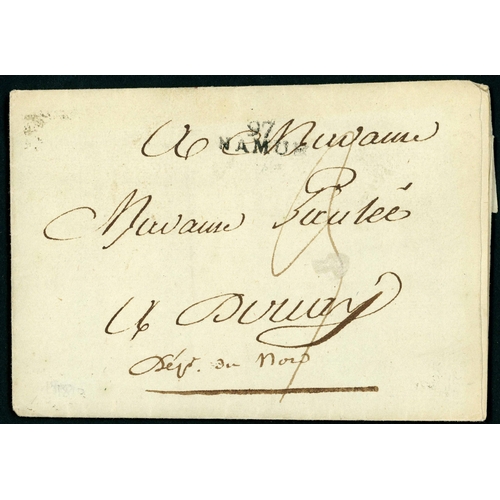 97
NAMUR
A Madame
Madame
A Douay
Dépt. du Nord